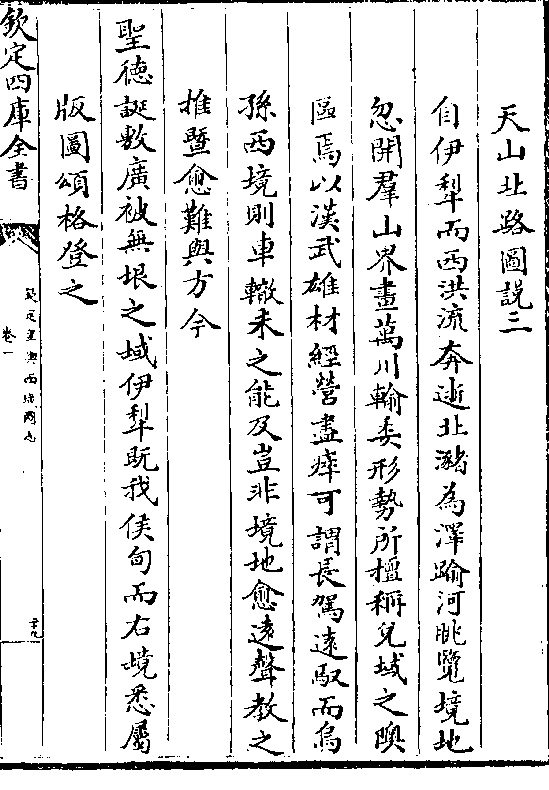 天山北路圖説三
自伊犂而西洪流奔逝北瀦為澤踰河眺覽境地
忽開羣山界畫萬川輸委形勢所擅稱兌域之隩
區焉以漢武雄材經營盡瘁可謂長駕遠馭而烏
孫西境則車轍未之能及豈非境地愈遠聲教之
推暨愈難與方今
聖德誕敷廣被無垠之域伊犂既我侯甸而右境悉屬
版圖頌格登之
欽定四庫全書
欽定皇輿西域圖志
卷一